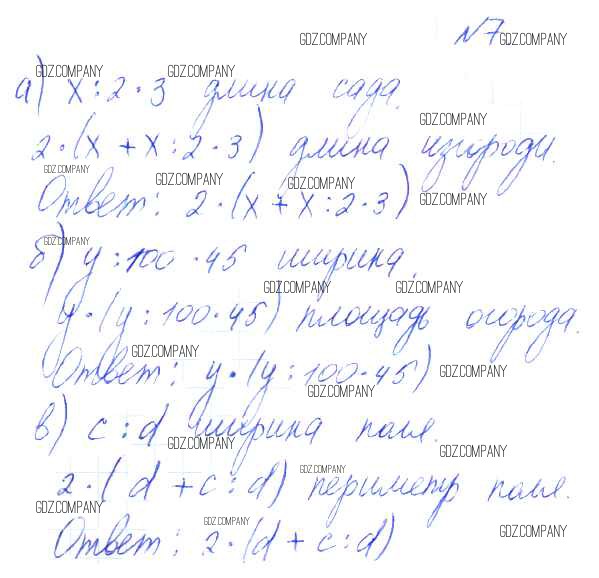 N7
а) x : 2 · 3 длина сада.
2 · (x + x : 2 · 3) длина изгороди.
Ответ: 2 · (x + x : 2 · 3)
б) y : 100 · 45 ширина.
y · (y : 100 · 45) площадь огорода.
Ответ: y · (y : 100 · 45)
в) c : d ширина поля.
2 · (d + c : d) периметр поля.
Ответ: 2 · (d + c : d)
GDZ.COMPANY GDZ.COMPANY
GDZ.COMPANY GDZ.COMPANY
GDZ.COMPANY
GDZ.COMPANY GDZ.COMPANY GDZ.COMPANY GDZ.COMPANY
GDZ.COMPANY
GDZ.COMPANY GDZ.COMPANY
GDZ.COMPANY GDZ.COMPANY GDZ.COMPANY
GDZ.COMPANY GDZ.COMPANY
GDZ.COMPANY
GDZ.COMPANY GDZ.COMPANY GDZ.COMPANY